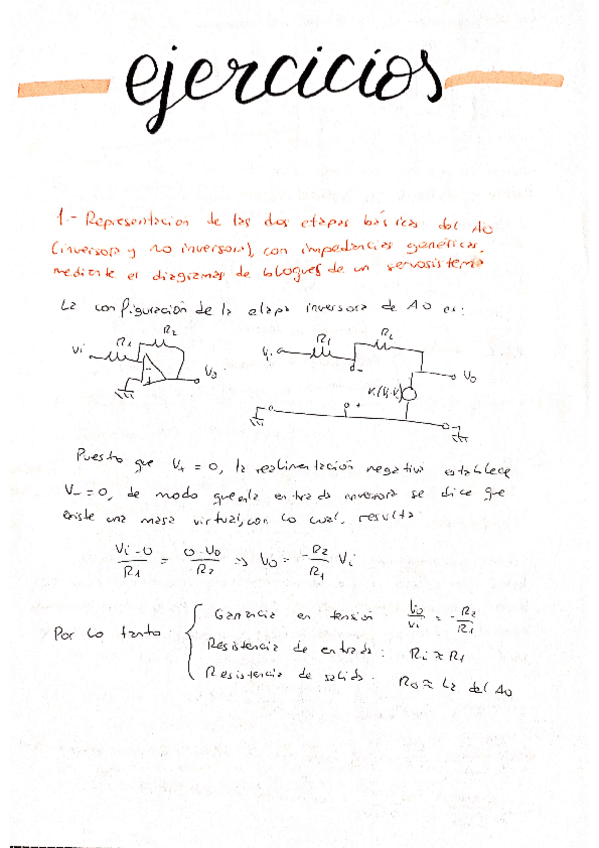 ejercicios
1.- Representación de las dos etapas básicas del AO
(inversora y no inversora), con impedancias genéricas,
mediante el diagramas de bloques de un servosistema
La configuración de la etapa inversora de AO es:
Vi R1 R2 Vo
Vi R1 R2 Vo
- +
Puesto que V+ = 0, la realimentación negativa establece
V- = 0, de modo que en la entrada inversora se dice que
existe una masa virtual, con lo cual, resulta
Vi - 0 / R1 = 0 - Vo / R2 => Vo = -R2 / R1 Vi
Por lo tanto
Ganancia en tensión Vo / Vi = -R2 / R1
Resistencia de entrada: Ri ≈ R1
Resistencia de salida: Ro ≈ La del AO